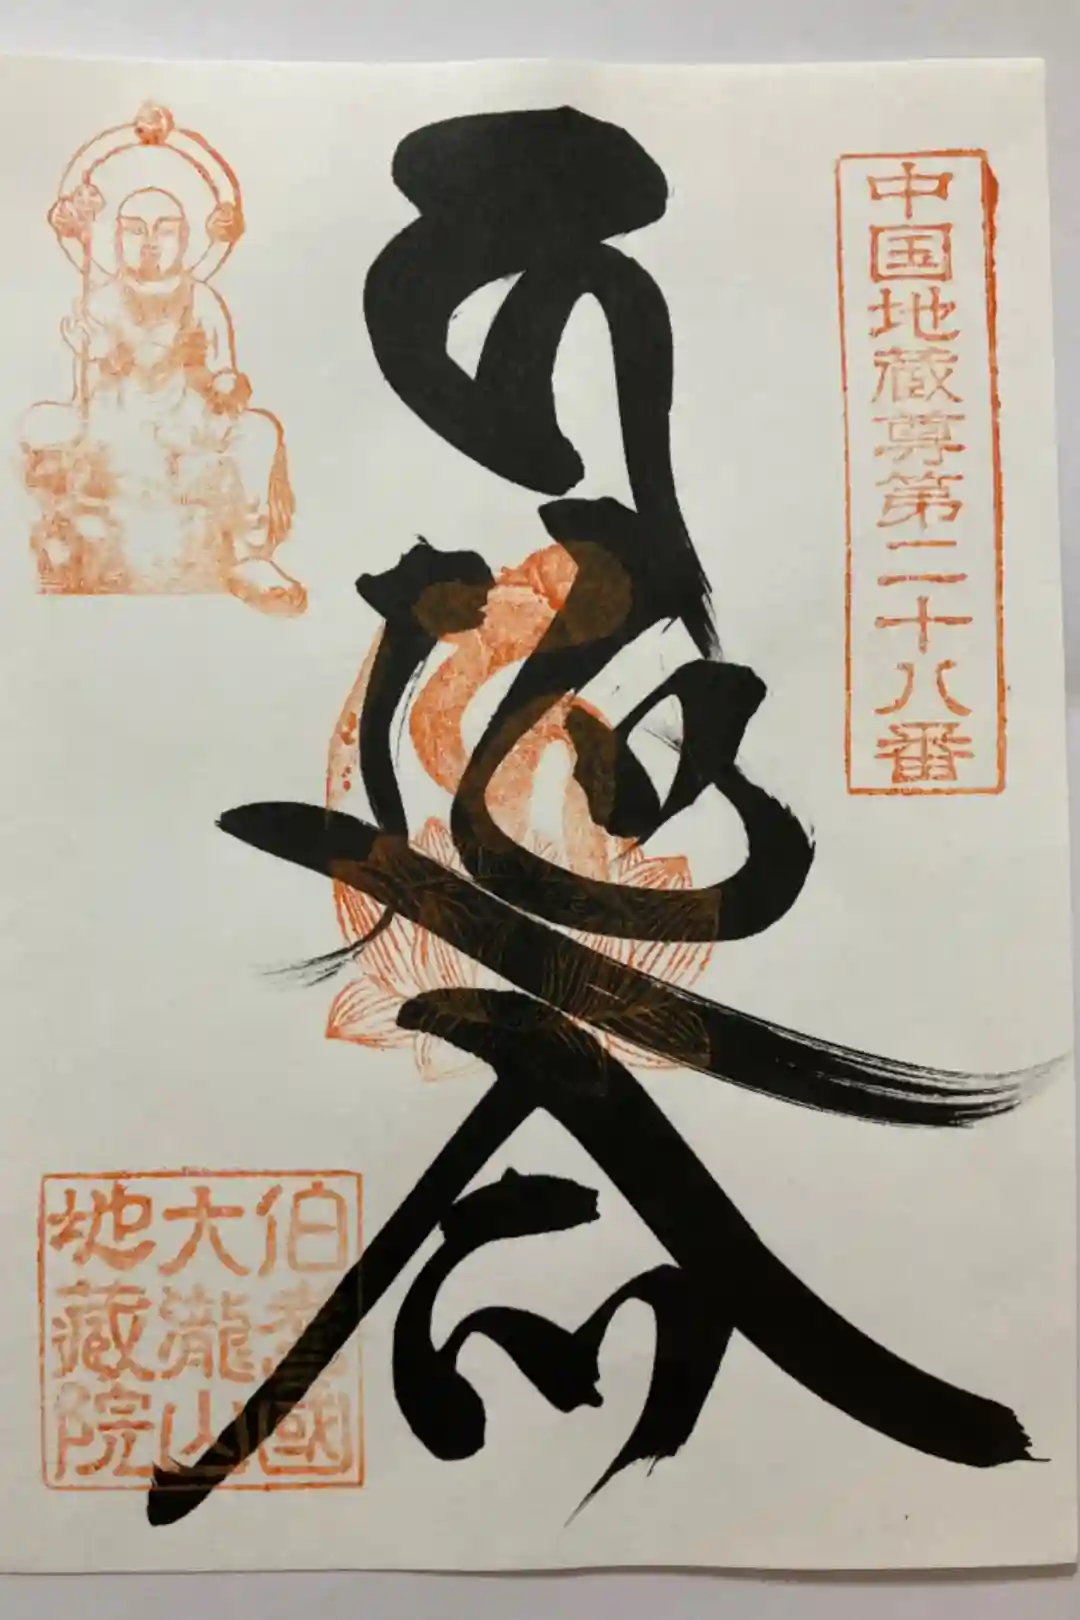 中国地蔵尊第二十八番
延命
伯耆國
大瀧山
地藏院